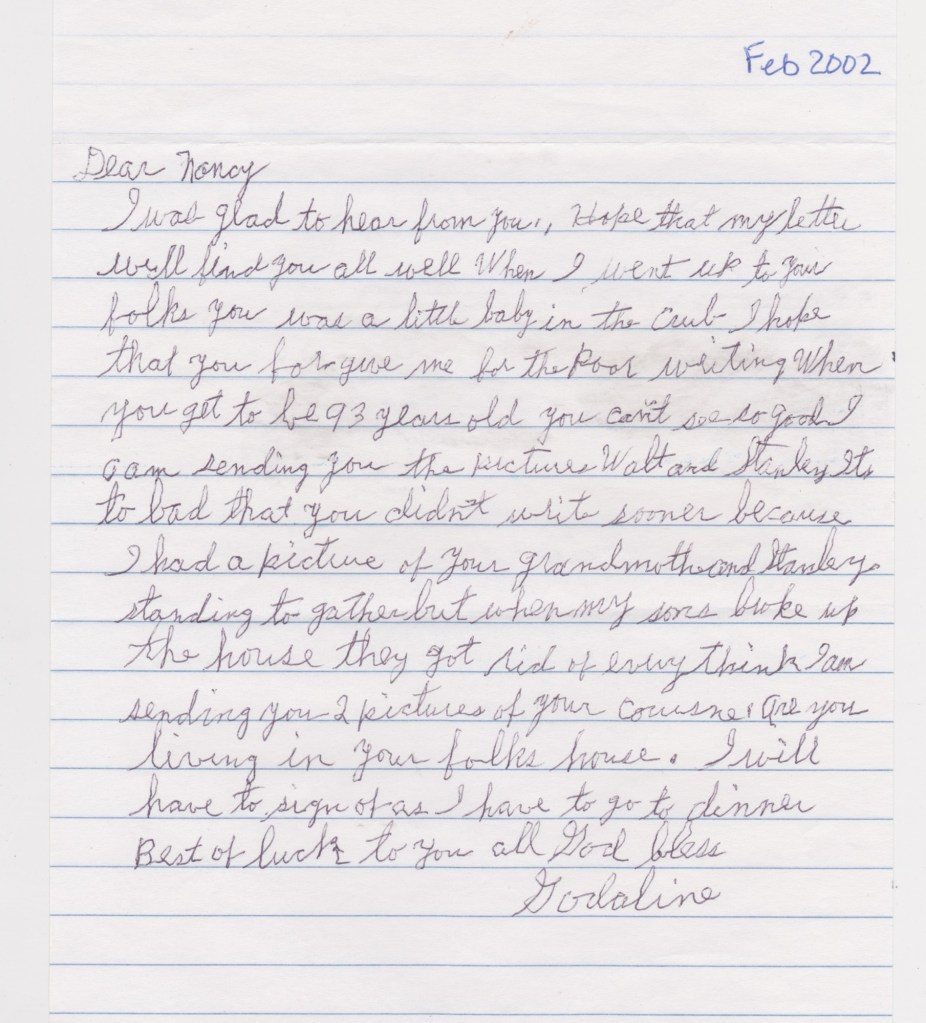 Feb 2002
Dear Nancy
I was glad to hear from you., Hope that my letter
will find you all well When I went up to your
folks you was a little baby in the crub I hope
that you forgive me for the Poor writing When
you get to be 93 years old you can't see so good I
aam sending you the pictures Walt and Stanley Its
to bad that you didn't write sooner because
I had a picture of your grandmother and Stanley
standing to gather but when my sons broke up
the house they got rid of every think I am
sending you 2 pictures of your Are you
living in your folks house. I will
have to sign of as I have to go to dinner
Best of luck to you all God bless
Godaline